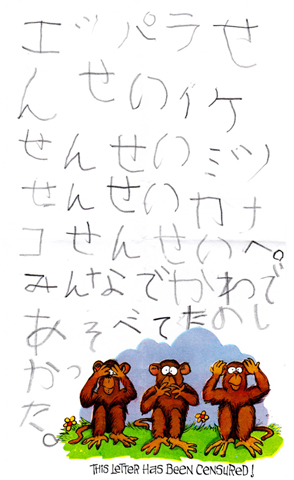 エヅパラせ
んせいイケ
せんせいミソ
せんせいカナ
コせんせいへ。
みんなでかわで
あそべてたのし
かっ
た。
THIS LETTER HAS BEEN CENSURED!